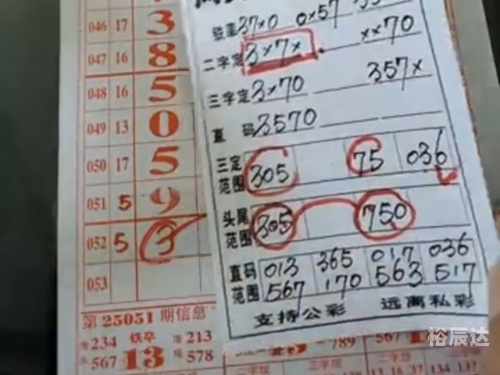 046 17 3
047 16 8
048 16 5
049 13 0
050 17 5
051 5 9
052 5 3
053
第25051期信息
准234 铁卒 准213
567 13 578
37×0 0×57
二字定 3×7× ××70
三字定 3×70 357×
直码 3570
三定范围 305 75 036
头尾范围 305 750
直码范围 013 365 017 036
567 170 563 517
支持公彩 远离私彩
裕辰达